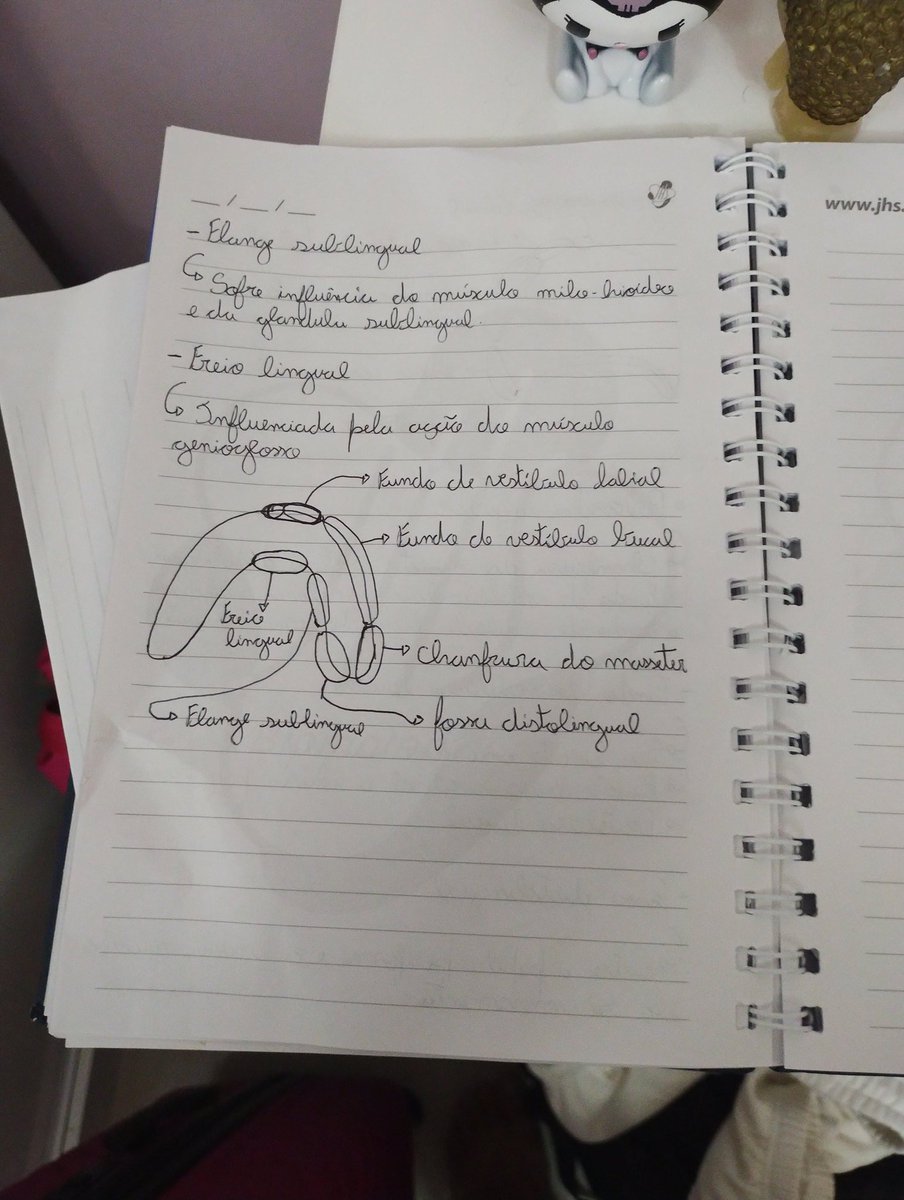 __/__/__
www.jhs.
- Flange sublingual
↳ Sofre influência do músculo milo-hioídeo
e da glândula sublingual.
- Freio lingual
↳ Influenciada pela ação do músculo
genioglosso
→ Fundo de vestíbulo labial
→ Fundo de vestíbulo bucal
Freio
lingual
→ Chanfrura do masseter
→ Flange sublingual
→ fossa distolingual